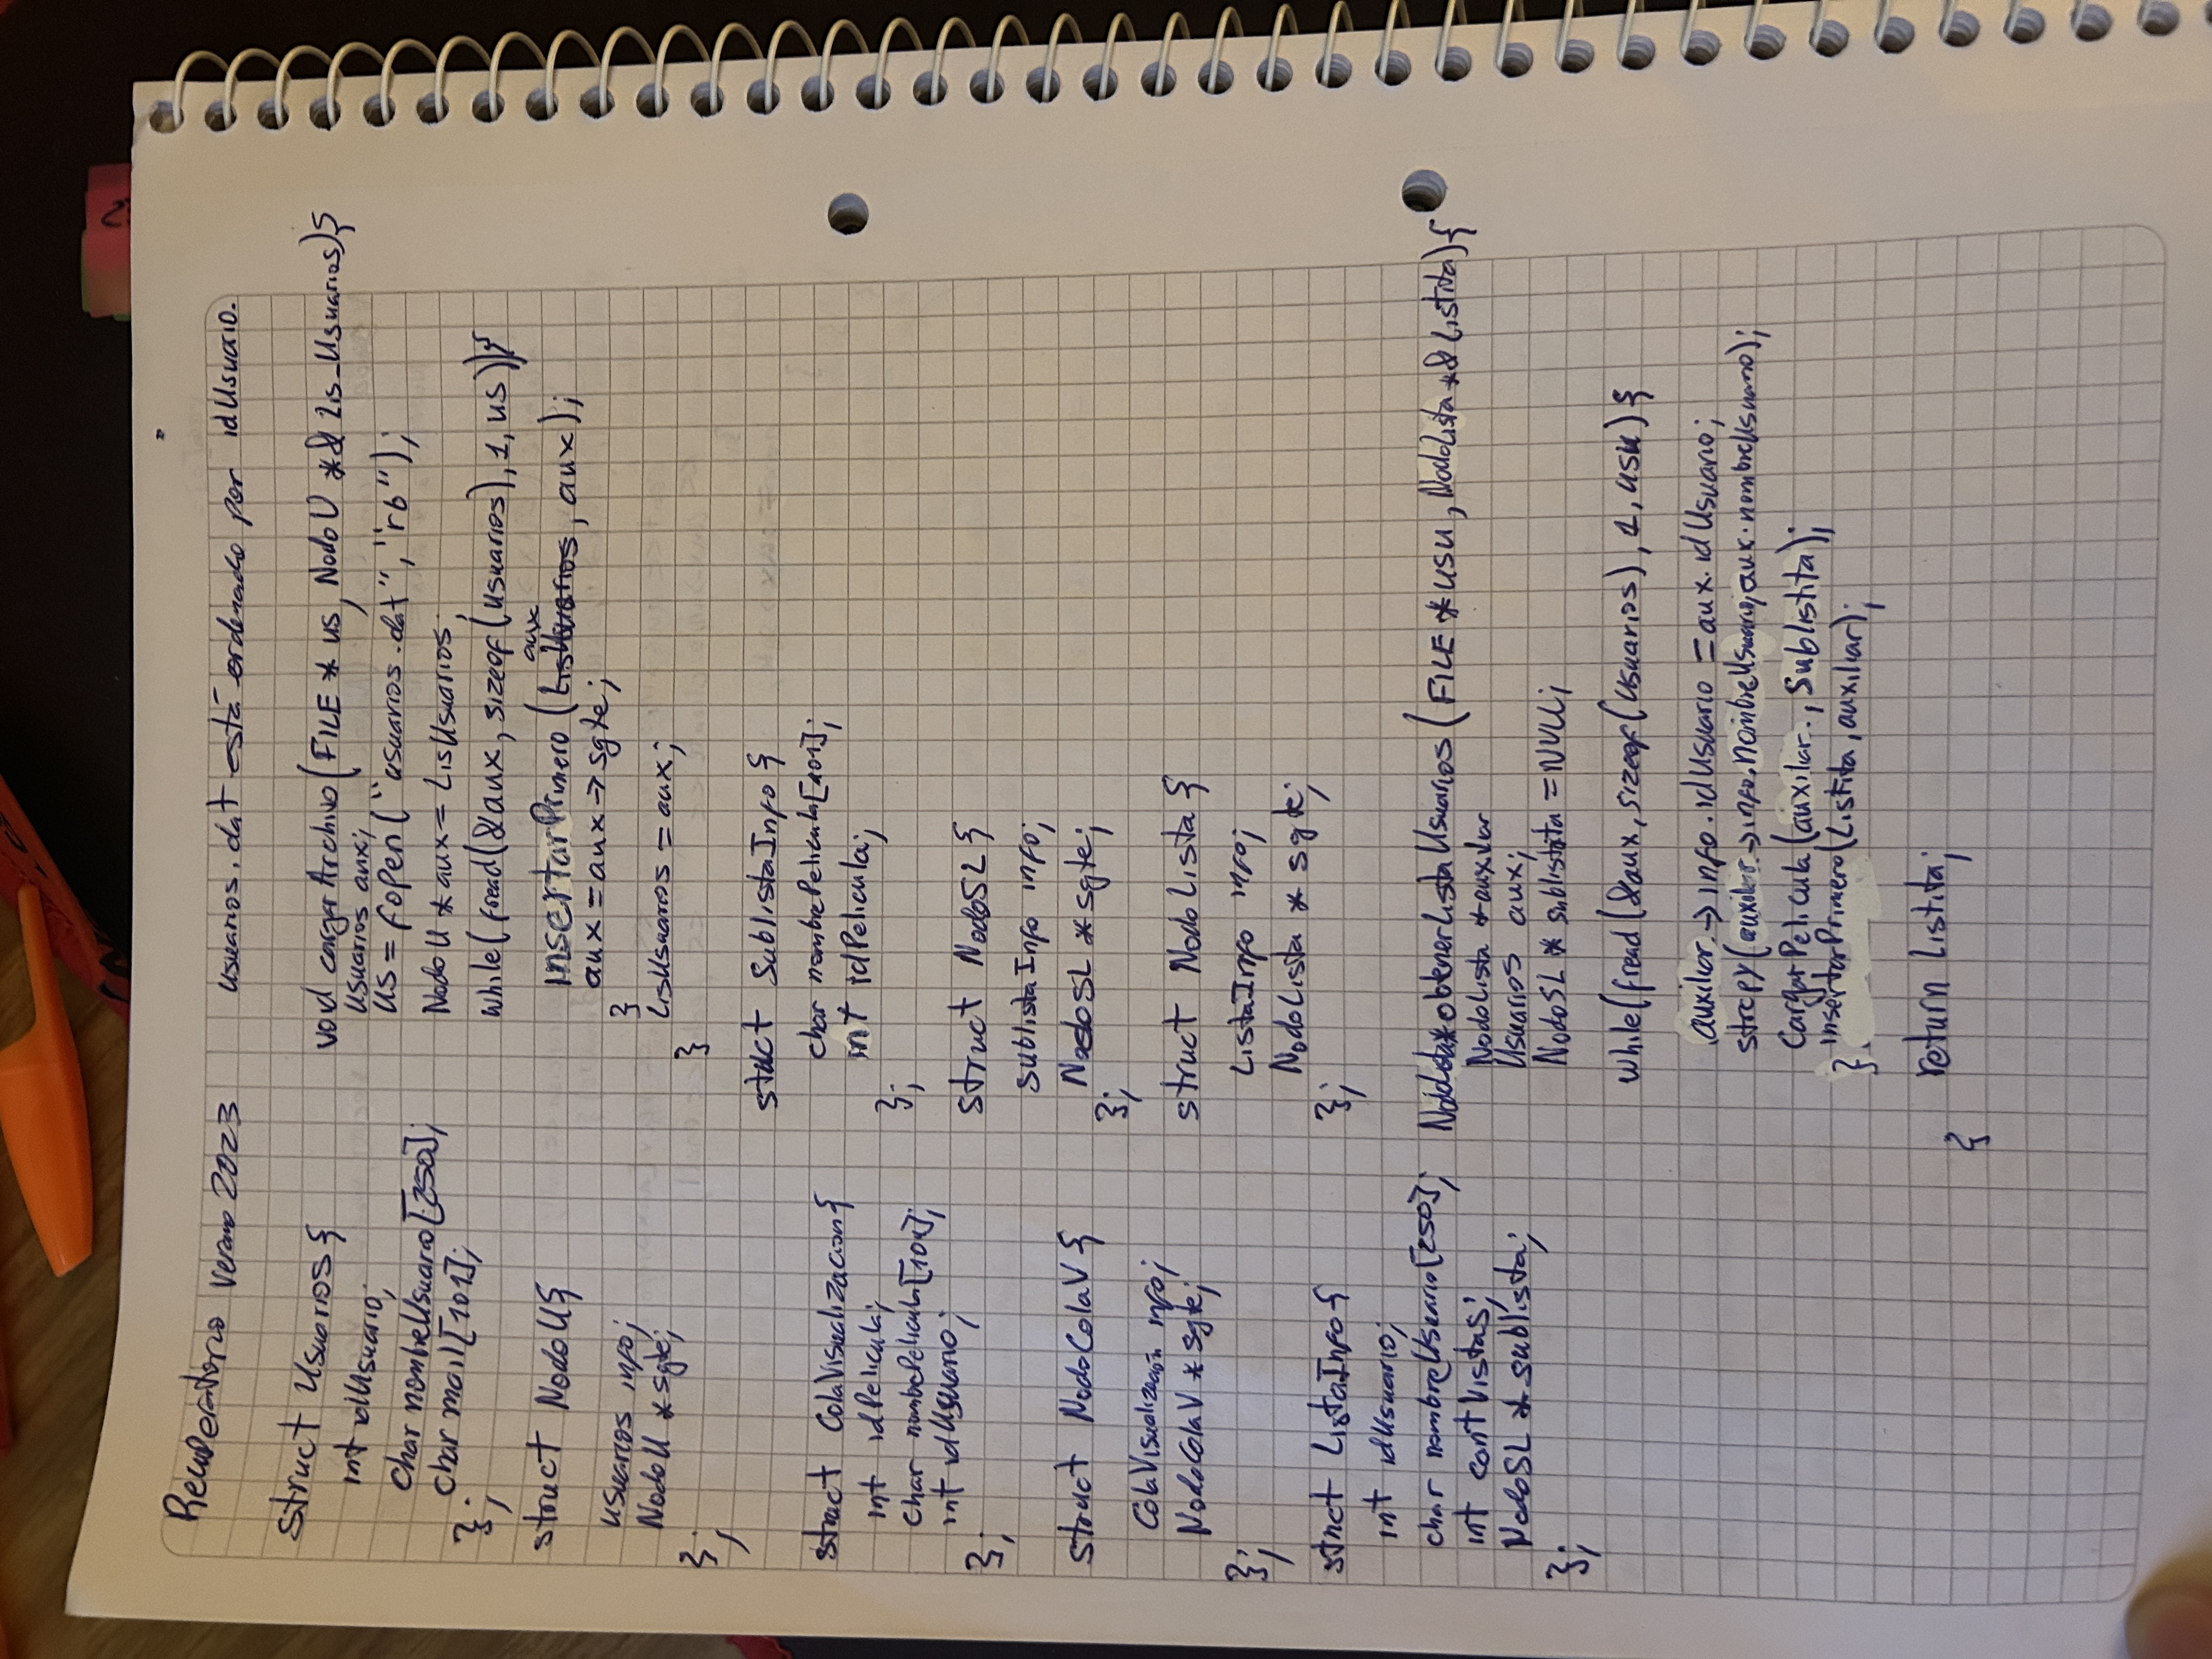 Recuperatorio Verano 2023
usuarios.dat está ordenado por idUsuario.
struct Usuarios {
int idUsuario;
char nombreUsuario[250];
char mail[101];
};
struct NodoU{
usuarios info;
NodoU *sgte;
};
struct ColaVisualizacion{
int idPelicula;
char nombrePelicula[101];
int idUsuario;
};
struct NodoColaV {
ColaVisualización info;
NodoColaV * sgte;
};
struct ListaInfo {
int idUsuario;
char nombreUsuario[250];
int contVistas;
NodoSL * sublista;
};
void cargarArchivo(FILE * us, NodoU *& Lis_Usuarios){
Usuarios aux;
us = fopen("usuarios.dat", "rb");
NodoU * aux = LisUsuarios;
while(fread(&aux, sizeof(usuarios), 1, us)){
aux
insertarPrimero (LisUsuarios, aux);
aux = aux -> sgte;
}
LisUsuarios = aux;
}
stuct SublistaInfo {
char nombrePelicula[101];
int idPelicula;
};
struct NodoSL {
sublistaInfo info;
NodoSL * sgte;
};
struct NodoLista {
ListaInfo info;
NodoLista * sgte;
};
NodoLista* obtenerListaUsuarios (FILE * usu, NodoLista *& Listita){
NodoLista *auxiliar
Usuarios aux;
NodoSL * sublistita = NULL;
while(fread (&aux, sizeof(usuarios), 1, usu) {
auxiliar -> info.idUsuario = aux.idUsuario;
strcpy(auxiliar -> info.nombreUsuario, aux.nombreUsuario);
CargarPelicula (auxiliar, Sublistita);
insertarPrimero(Listita, auxiliar);
}
return Listita;
}